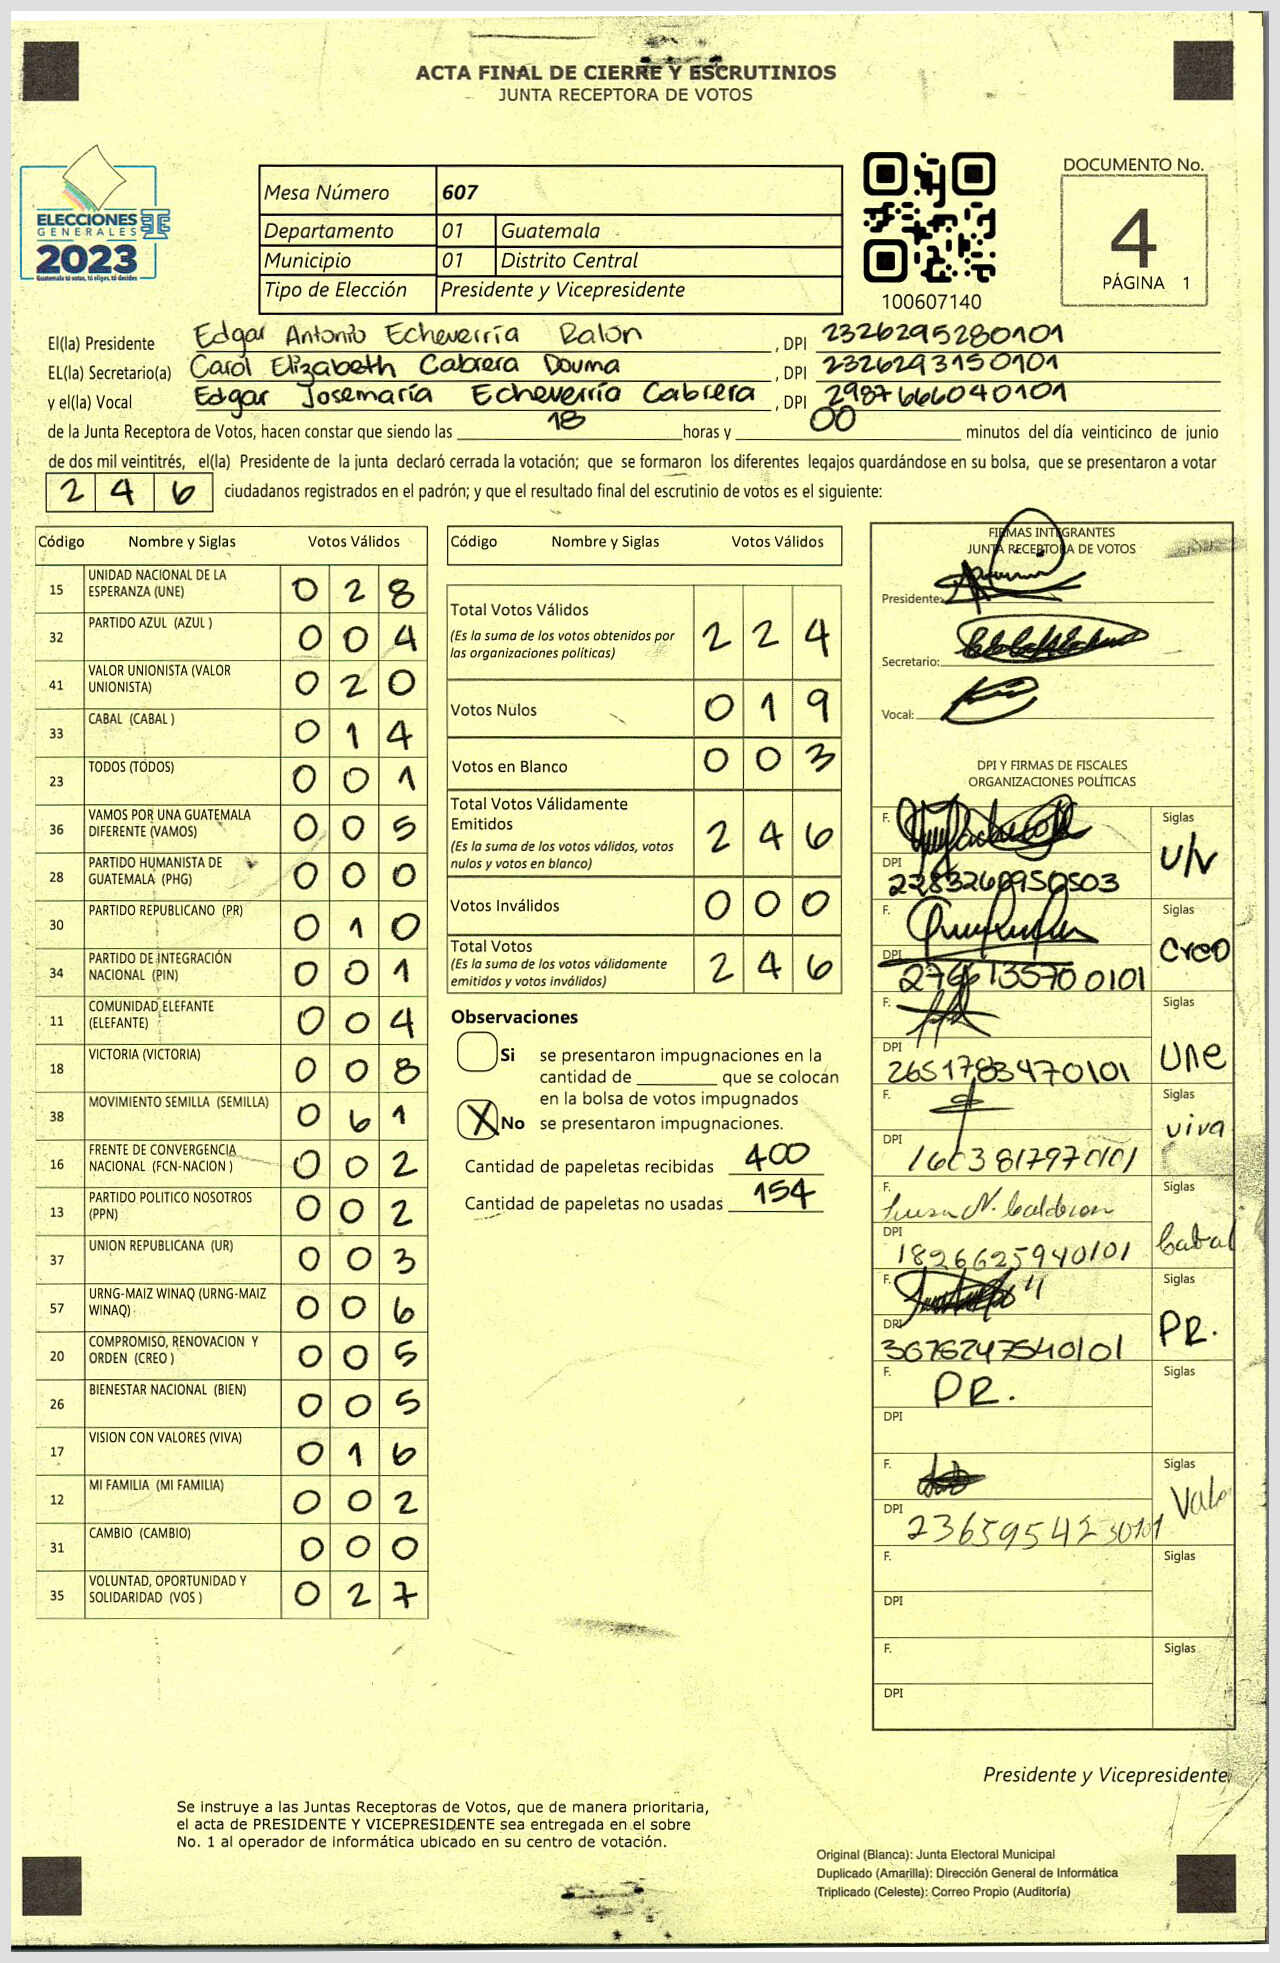 ACTA FINAL DE CIERRE Y ESCRUTINIOS
JUNTA RECEPTORA DE VOTOS
ELECCIONES
GENERALES
2023
Guatemala tú votas, tú eliges, tú decides
Mesa Número 607
Departamento 01 Guatemala
Municipio 01 Distrito Central
Tipo de Elección Presidente y Vicepresidente
100607140
DOCUMENTO No.
4
PÁGINA 1
El(la) Presidente Edgar Antonio Echeverría Ralón , DPI 2326295280101
EL(la) Secretario(a) Carol Elizabeth Cabrera Douma , DPI 2326293150101
y el(la) Vocal Edgar Josemaría Echeverría Cabrera , DPI 2987666040101
de la Junta Receptora de Votos, hacen constar que siendo las 18 horas y 00 minutos del día veinticinco de junio
de dos mil veintitrés, el(la) Presidente de la junta declaró cerrada la votación; que se formaron los diferentes legajos guardándose en su bolsa, que se presentaron a votar
246 ciudadanos registrados en el padrón; y que el resultado final del escrutinio de votos es el siguiente:
Código Nombre y Siglas Votos Válidos
15 UNIDAD NACIONAL DE LA ESPERANZA (UNE) 0 2 8
32 PARTIDO AZUL (AZUL ) 0 0 4
41 VALOR UNIONISTA (VALOR UNIONISTA) 0 2 0
33 CABAL (CABAL ) 0 1 4
23 TODOS (TODOS) 0 0 1
36 VAMOS POR UNA GUATEMALA DIFERENTE (VAMOS) 0 0 5
28 PARTIDO HUMANISTA DE GUATEMALA (PHG) 0 0 0
30 PARTIDO REPUBLICANO (PR) 0 1 0
34 PARTIDO DE INTEGRACIÓN NACIONAL (PIN) 0 0 1
11 COMUNIDAD ELEFANTE (ELEFANTE) 0 0 4
18 VICTORIA (VICTORIA) 0 0 8
38 MOVIMIENTO SEMILLA (SEMILLA) 0 6 1
16 FRENTE DE CONVERGENCIA NACIONAL (FCN-NACION ) 0 0 2
13 PARTIDO POLITICO NOSOTROS (PPN) 0 0 2
37 UNION REPUBLICANA (UR) 0 0 3
57 URNG-MAIZ WINAQ (URNG-MAIZ WINAQ) 0 0 6
20 COMPROMISO, RENOVACION Y ORDEN (CREO ) 0 0 5
26 BIENESTAR NACIONAL (BIEN) 0 0 5
17 VISION CON VALORES (VIVA) 0 1 6
12 MI FAMILIA (MI FAMILIA) 0 0 2
31 CAMBIO (CAMBIO) 0 0 0
35 VOLUNTAD, OPORTUNIDAD Y SOLIDARIDAD (VOS ) 0 2 7
Código Nombre y Siglas Votos Válidos
Total Votos Válidos
(Es la suma de los votos obtenidos por las organizaciones políticas) 2 2 4
Votos Nulos 0 1 9
Votos en Blanco 0 0 3
Total Votos Válidamente Emitidos
(Es la suma de los votos válidos, votos nulos y votos en blanco) 2 4 6
Votos Inválidos 0 0 0
Total Votos
(Es la suma de los votos válidamente emitidos y votos inválidos) 2 4 6
Observaciones
Si se presentaron impugnaciones en la
cantidad de ________ que se colocan
en la bolsa de votos impugnados
X No se presentaron impugnaciones.
Cantidad de papeletas recibidas 400
Cantidad de papeletas no usadas 154
FIRMAS INTEGRANTES
JUNTA RECEPTORA DE VOTOS
Presidente:
Secretario:
Vocal:
DPI Y FIRMAS DE FISCALES
ORGANIZACIONES POLÍTICAS
F. Siglas U/V
DPI 2283260950503
F. Siglas Creo
DPI
F. Siglas Une
DPI 2651783470101
F. Siglas viva
DPI
F. Siglas Cabal
DPI 1826625940101
F. Siglas PR.
DPI 3076247540101
F. PR. Siglas
DPI
F. Siglas
DPI
F. Siglas
DPI
F. Siglas
DPI
Presidente y Vicepresidente
Se instruye a las Juntas Receptoras de Votos, que de manera prioritaria,
el acta de PRESIDENTE Y VICEPRESIDENTE sea entregada en el sobre
No. 1 al operador de informática ubicado en su centro de votación.
Original (Blanca): Junta Electoral Municipal
Duplicado (Amarilla): Dirección General de Informática
Triplicado (Celeste): Correo Propio (Auditoría)